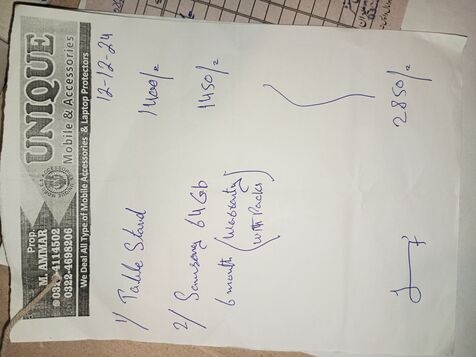 UNIQUE
Mobile & Accessories
Prop.
M. AMMAR
0322-4696206
We Deal All Type of Mobile Accessories & Laptop Protectors
12-12-24
1) Table Stand 1400/=
2) Samsung 64Gb 1450/=
6 month (Warranty)
(with Packs)
2850/=